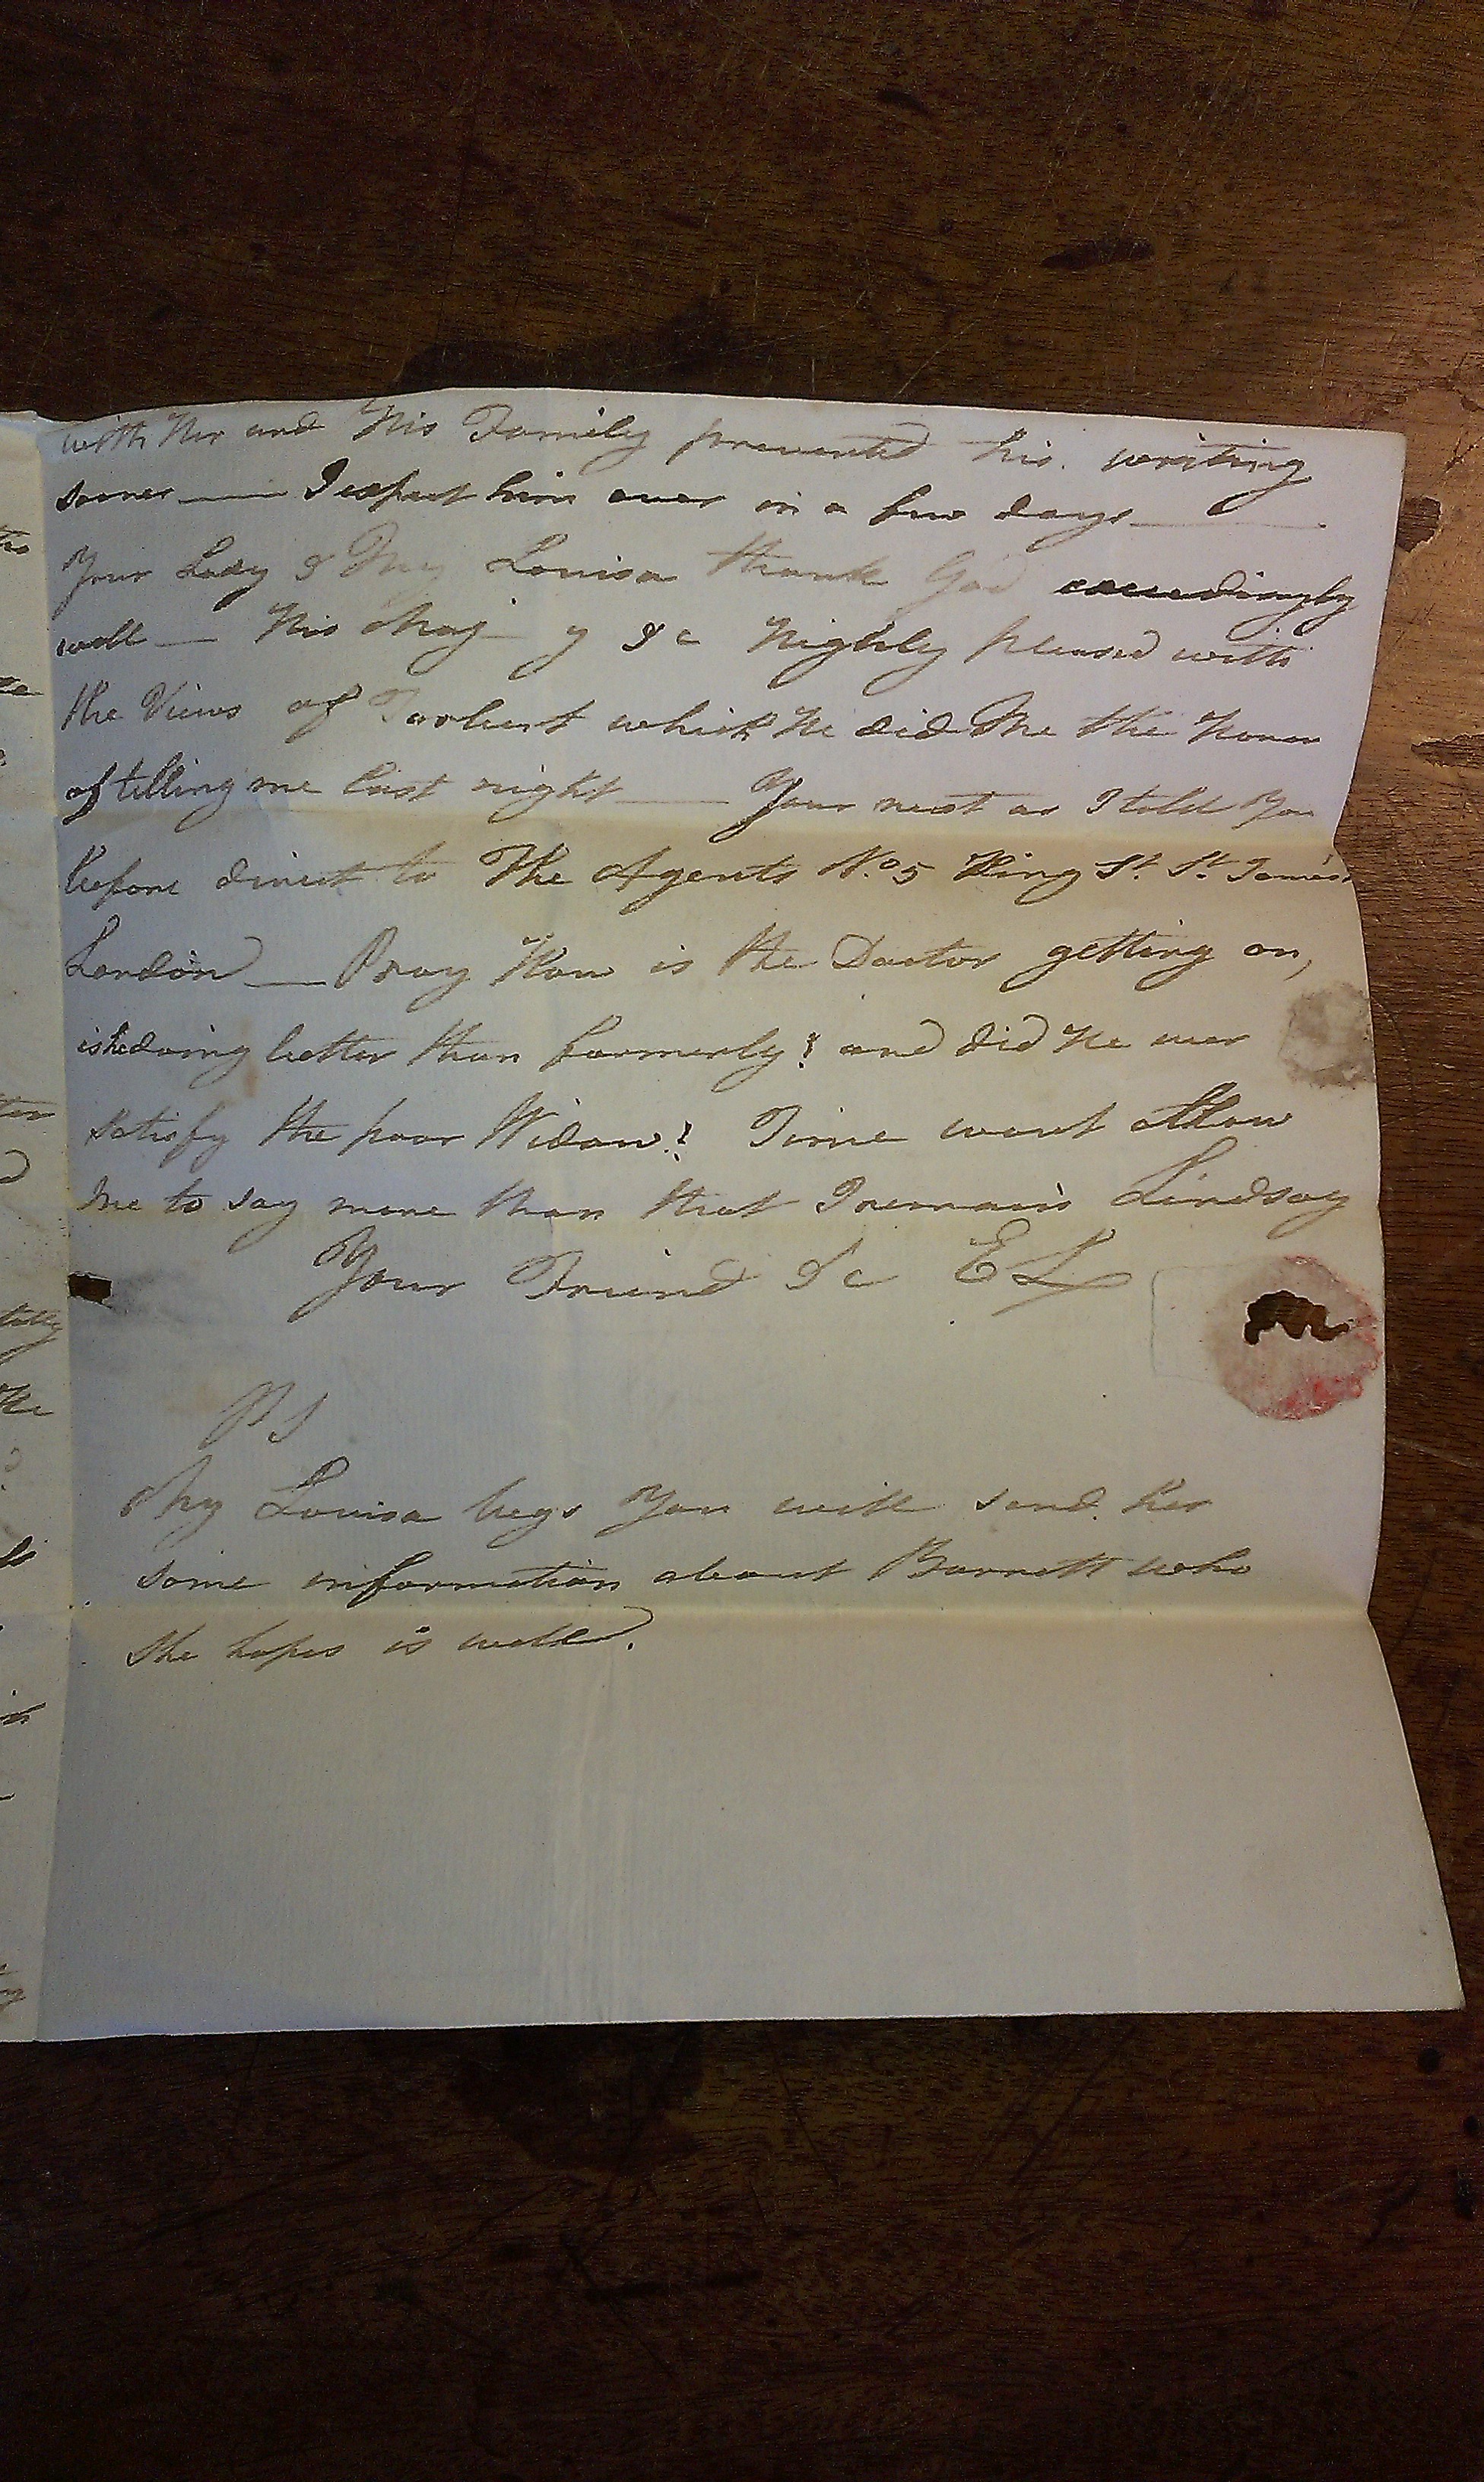 with Her and His Family prevented his writing
sooner — I expect him over in a few days —
Your Lady & My Louisa thank God exceedingly
well — His Maj y &c Highly pleased with
the Views of Tarbert which He did Me the Honor
of telling me last night — Your next as I told You
before direct to The Agents No. 5 King St. St. James's
London — Pray How is the Doctor getting on,
is he doing better than formerly? and did He ever
satisfy the poor Widow? Time wont allow
me to say more than that I remain Lindsay
Your Friend &c EL
PS
My Louisa begs You will send her
some information about Barnett who
she hopes is well.